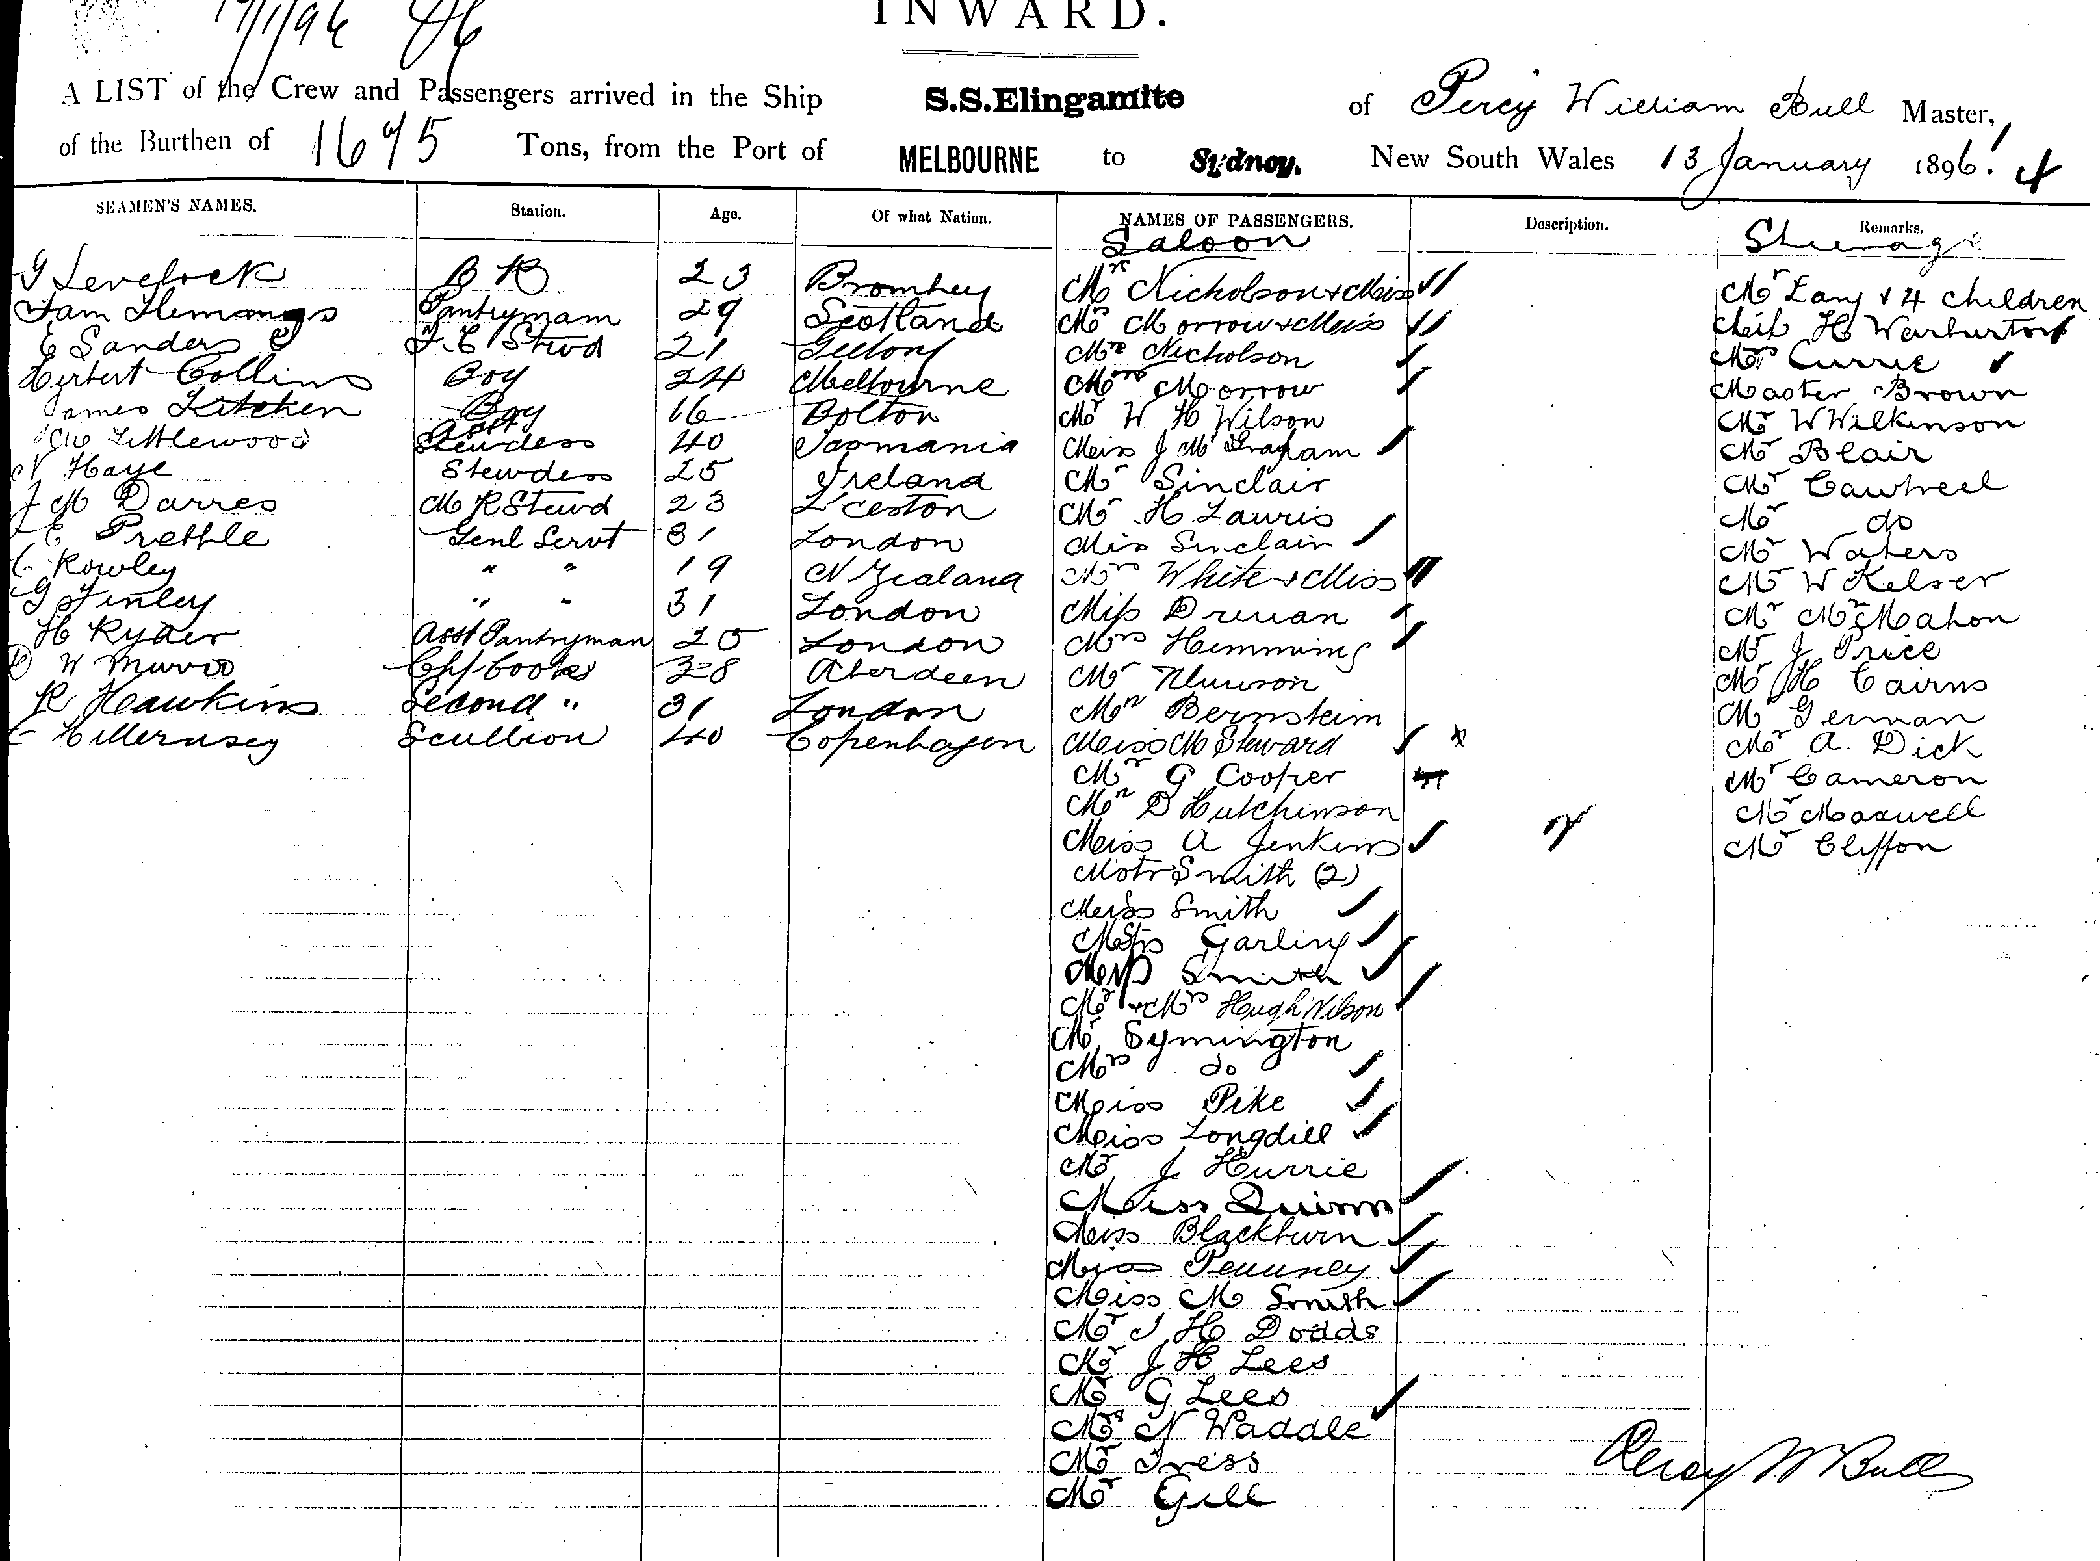 INWARD.
A LIST of the Crew and Passengers arrived in the Ship S.S.Elingamite of Percy William Bull Master,
of the Burthen of 1675 Tons, from the Port of MELBOURNE to Sydney, New South Wales 13 January 1896.
SEAMEN'S NAMES. Station. Age. Of what Nation. NAMES OF PASSENGERS. Description. Remarks.
Saloon
G Levelock B R 23 Mr Nicholson & Miss Mr Lang & 4 children
Pantrymam 29 Scotland Mr Morrow & Miss H Warburton
E Sanders F.C Stwd 21 Mrs Nicholson Currie
Herbert Collins Boy 24 Melbourne Mrs Morrow Master Brown
James Kitchen Boy 16 Bolton Mr W H Wilson Mr W Wilkinson
Littlewood Stewdess 40 Tasmania Miss J Mc Graham Mr Blair
N Haye Stewdess 25 Ireland Mr Sinclair Mr
J M Darres M R Stewd 23 L'ceston Mr H Lauris Mr do
E Prebble Genl Servt 31 London Miss Sinclair Mr Waters
C Rowley " " 19 N Zealand Mrs White & Miss Mr W Kelser
G Finley " " 31 London Miss Mr McMahon
H Ryder Asst Pantryman 25 London Mrs Hemming Mr J Price
W Munro 38 Aberdeen Mr Mr H Cairns
R Hawkins Second " 31 London Mr Bernsteim Mr German
Scullion 40 Copenhagen Miss M Steward Mr A. Dick
Mr G Cooper Mr Cameron
Mr D Hutchinson Mr Maxwell
Miss A Jenkins Mr Cliffon
Mstr Smith (2)
Miss Smith
Garling
Smith
Mr & Mrs Hugh Nilson
Mr Symington
Mrs do
Miss Pike
Miss Longdill
Mr J Hurrie
Miss Quinn
Miss Blackburn
Miss
Miss M Smith
Mr J H Dodds
Mr J H Lees
Mr G Lees
Mrs N Waddle
Mr Tress
Mr Gill
Percy W Bull